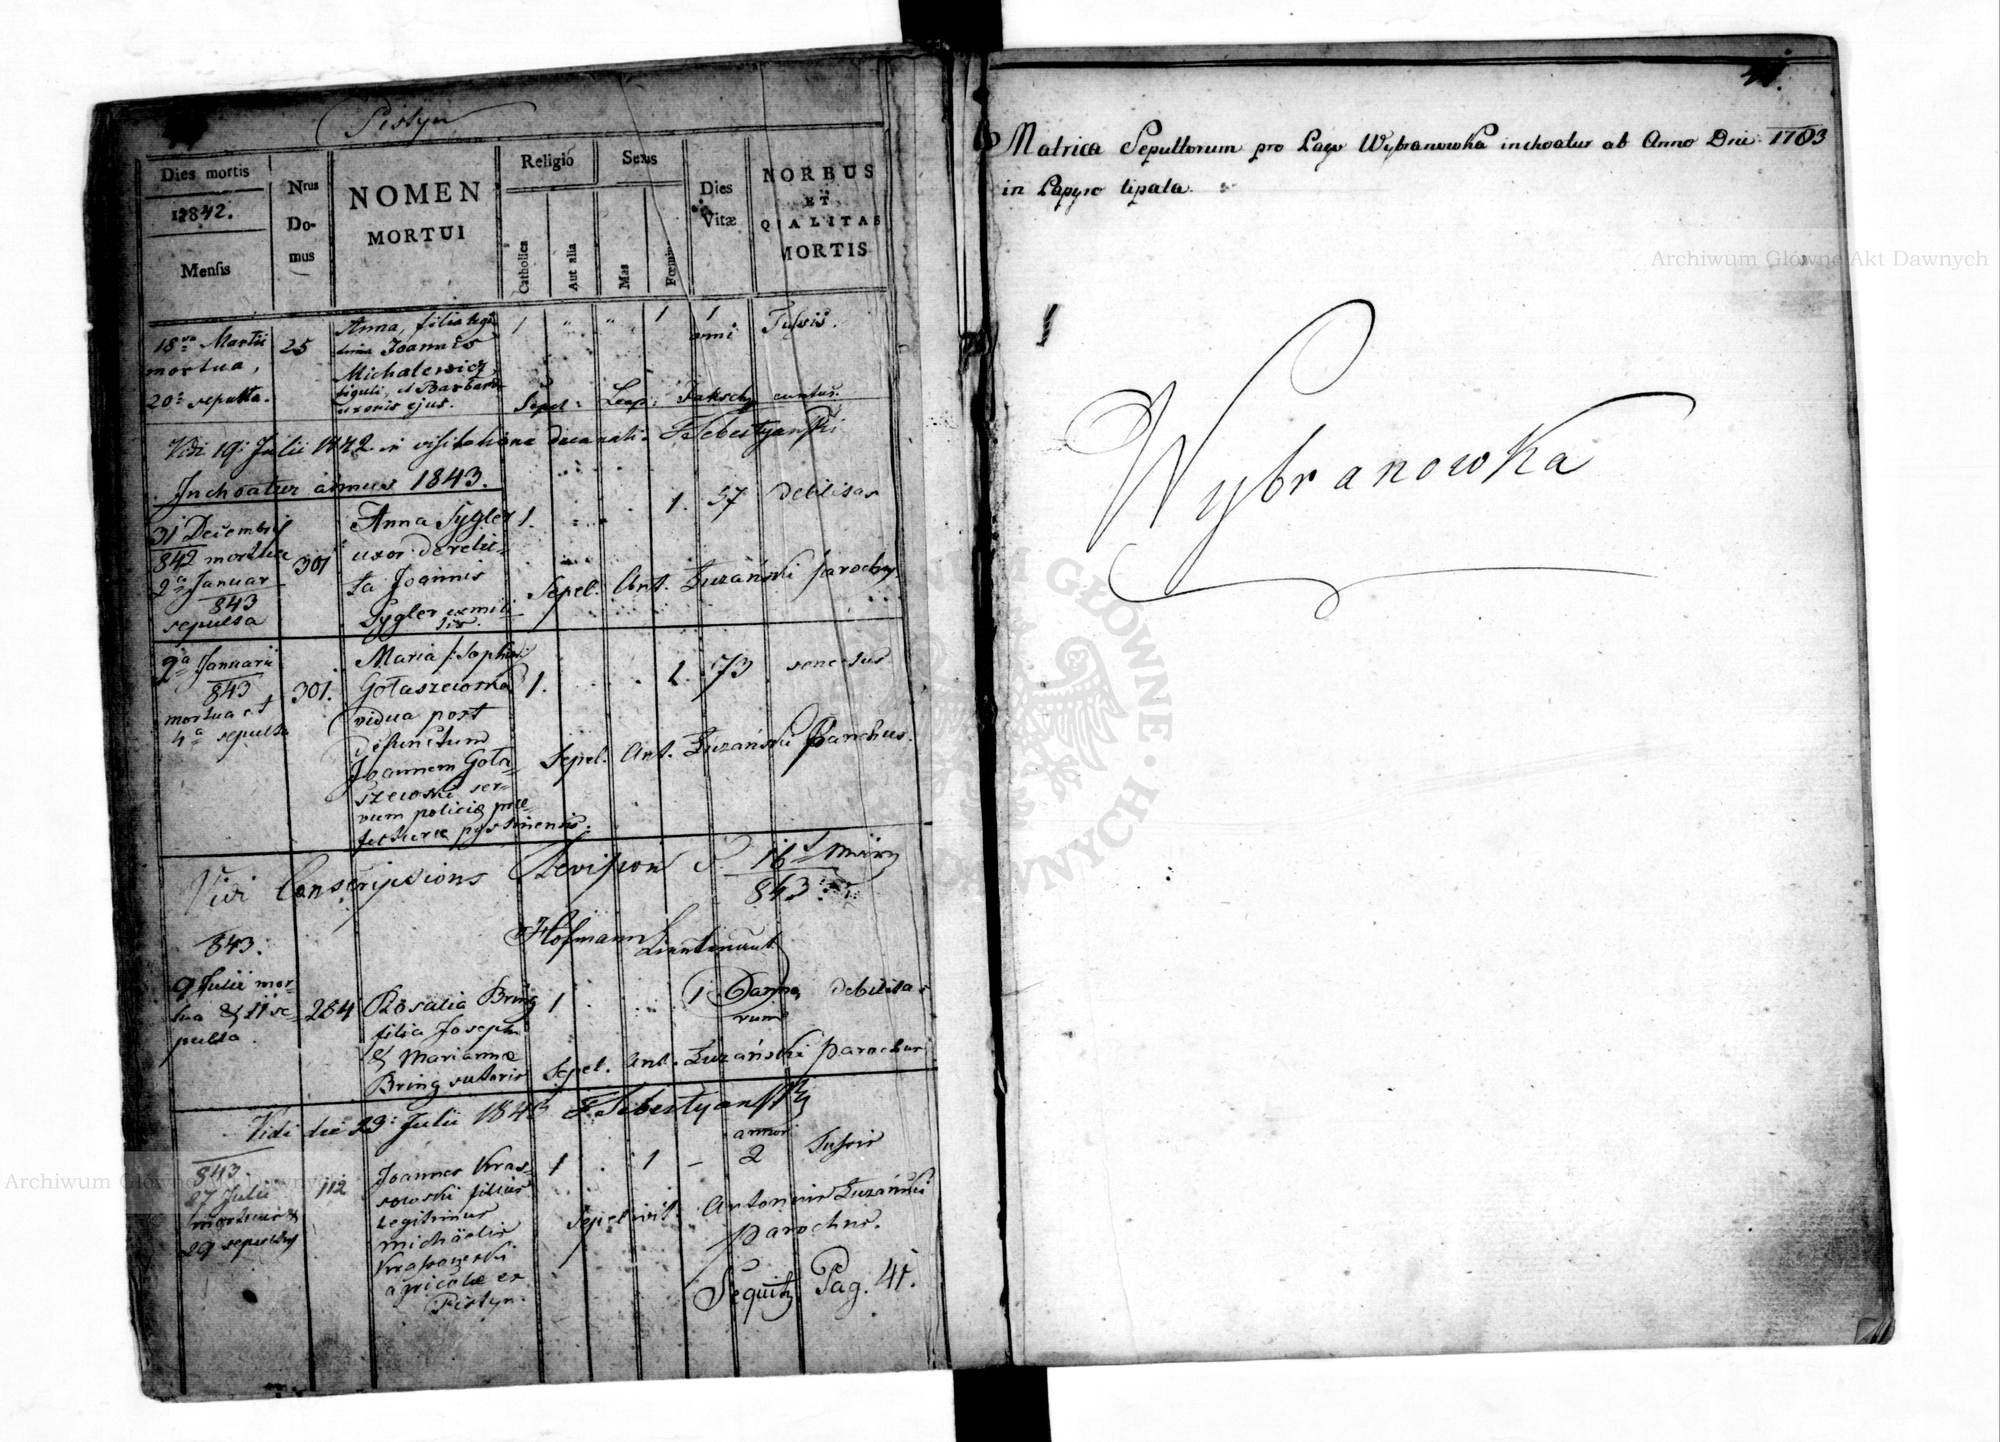 Pistyn
Dies mortis
1842.
Mensis
Nrus
Do-
mus
NOMEN
MORTUI
Religio
Catholica
Aut alia
Sexus
Mas
Fœmin
Dies
Vitæ
NORBUS
ET
QUALITAS
MORTIS
18va Martii
mortua,
20a sepulta.
25
Anna, filia legi-
tima Joannis
Michalewicz,
figuli, et Barbara
uxoris ejus.
1 " " 1 1
anni
Tussis.
Sepel:
Vidi 19: Julii 1842 in visitatione decanali. F Sebestyanski
Inchoatur annus 1843.
31 Decembris
842 mortua
2a Januar
843
sepulta
301
Anna Sygler
uxor derelic-
ta Joannis
Sygler exmili-
tis.
1. 1. 57 debilitas
Sepel. Ant. Łuzański parochus
2a Januarii
843
mortua et
4a sepulta
301.
Maria /: Sophia
Gołaszewska
vidua post
defunctum
Joannem Goła-
szewski ser-
vum policiæ præ-
fecturæ pystinensis.
1. 1. 73 senectus
Sepel. Ant. Łuzański Parochus.
Vidi Conscriptions Revision 16t März
843.
Hofmann
Lieutenant
843.
9 Julii mor-
tua & 11 se-
pulta.
284
Rosalia Bring
filia Josephi
& Mariannæ
Bring sutoris
1 1 debilitas
Sepel. Ant. Łuzański parochus
Vidi die 23: Julii 1843 F Sebestyanski
843.
27 Julii
mortuus &
29 sepultus
112
Joannes Kras-
sowski filius
legitimus
Michaelis
Krassowski
agricolæ ex
Pistyn.
1 . 1 –
annor
2
Tussis
Sepelivit. Antonius Łuzański
parochus.
Sequitur Pag. 41.
41.
Matrica Sepultorum pro Pago Wybranowka inchoatur ab Anno Dni 1783
in Papyro tipata.
Wybranowka
Archiwum Główne Akt Dawnych
Archiwum Główne Akt Dawnych
ARCHIWUM GŁÓWNE AKT DAWNYCH